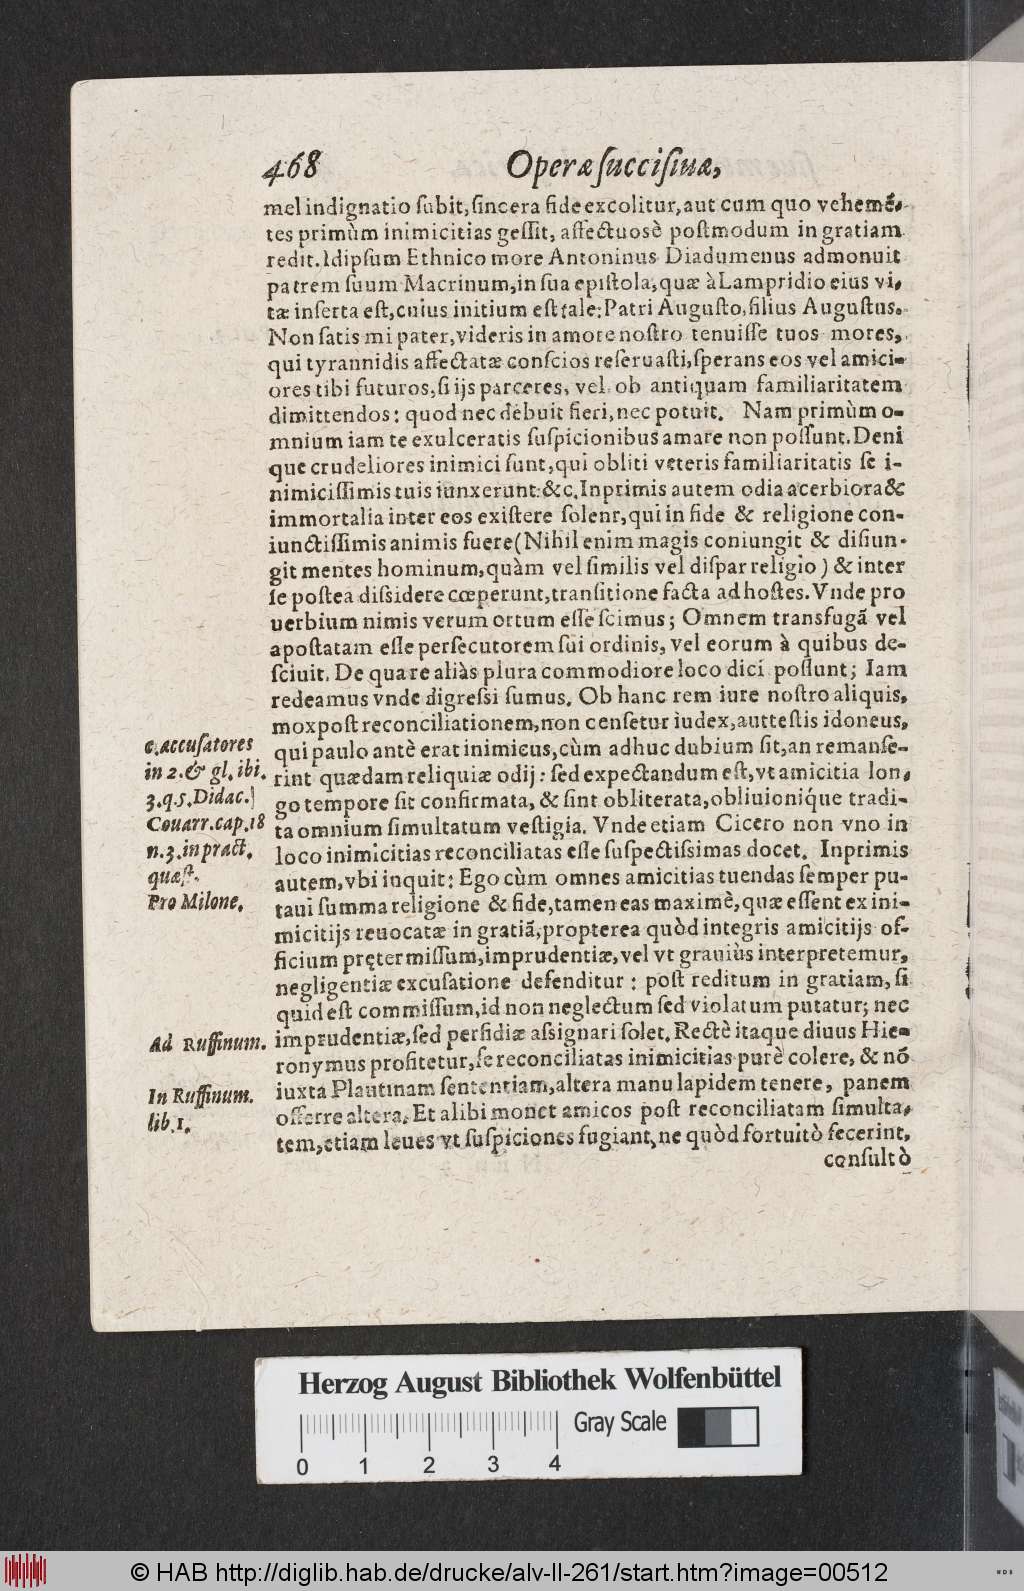 468 Operæ ſucciſiuæ,
mel indignatio ſubit, ſincera fide excolitur, aut cum quo vehemẽ-
tes primùm inimicitias geſſit, affectuosè poſtmodum in gratiam
redit. Idipſum Ethnico more Antoninus Diadumenus admonuit
patrem ſuum Macrinum, in ſua epiſtola, quæ à Lampridio eius vi-
tæ inſerta eſt, cuius initium eſt tale: Patri Auguſto, filius Auguſtus.
Non ſatis mi pater, videris in amore noſtro tenuiſſe tuos mores,
qui tyrannidis affectatæ conſcios reſeruaſti, ſperans eos vel amici-
ores tibi futuros, ſi ijs parceres, vel ob antiquam familiaritatem
dimittendos: quod nec debuit fieri, nec potuit. Nam primùm o-
mnium iam te exulceratis ſuſpicionibus amare non poſſunt. Deni
que crudeliores inimici ſunt, qui obliti veteris familiaritatis ſe i-
nimiciſſimis tuis iunxerunt &c. Inprimis autem odia acerbiora &
immortalia inter eos exiſtere ſolent, qui in fide & religione con-
iunctiſſimis animis fuere (Nihil enim magis coniungit & diſiun-
git mentes hominum, quàm vel ſimilis vel diſpar religio) & inter
ſe poſtea diſsidere cœperunt, tranſitione facta ad hoſtes. Vnde pro
uerbium nimis verum ortum eſſe ſcimus; Omnem transfugã vel
apoſtatam eſſe perſecutorem ſui ordinis, vel eorum à quibus de-
ſciuit. De qua re aliàs plura commodiore loco dici poſſunt; Iam
redeamus vnde digreſsi ſumus. Ob hanc rem iure noſtro aliquis,
mox poſt reconciliationem, non cenſetur iudex, aut teſtis idoneus,
qui paulo antè erat inimicus, cùm adhuc dubium ſit, an remanſe-
rint quædam reliquiæ odij: ſed expectandum eſt, vt amicitia lon-
go tempore ſit confirmata, & ſint obliterata, obliuioniq́ue tradi-
ta omnium ſimultatum veſtigia. Vnde etiam Cicero non vno in
loco inimicitias reconciliatas eſſe ſuſpectiſsimas docet. Inprimis
autem, vbi inquit: Ego cùm omnes amicitias tuendas ſemper pu-
taui ſumma religione & fide, tamen eas maximè, quæ eſſent ex ini-
micitijs reuocatæ in gratiã, propterea quòd integris amicitijs of-
ficium prętermiſſum, imprudentiæ, vel vt grauiùs interpretemur,
negligentiæ excuſatione defenditur: poſt reditum in gratiam, ſi
quid eſt commiſſum, id non neglectum ſed violatum putatur; nec
imprudentiæ, ſed perfidiæ aſsignari ſolet. Rectè itaque diuus Hie-
ronymus profitetur, ſe reconciliatas inimicitias purè colere, & nõ
iuxta Plautinam ſententiam, altera manu lapidem tenere, panem
offerre altera. Et alibi monet amicos poſt reconciliatam ſimulta-
tem, etiam leues vt ſuſpiciones fugiant, ne quòd fortuitò fecerint,
conſultò
c. accuſatores
in 2. & gl. ibi.
3. q. 5. Didac.
Couarr. cap. 18
n. 3. in pract.
quæſt.
Pro Milone.
Ad Ruffinum.
In Ruffinum.
lib. 1.
Herzog August Bibliothek Wolfenbüttel
Gray Scale
0 1 2 3 4
© HAB http://diglib.hab.de/drucke/alv-ll-261/start.htm?image=00512